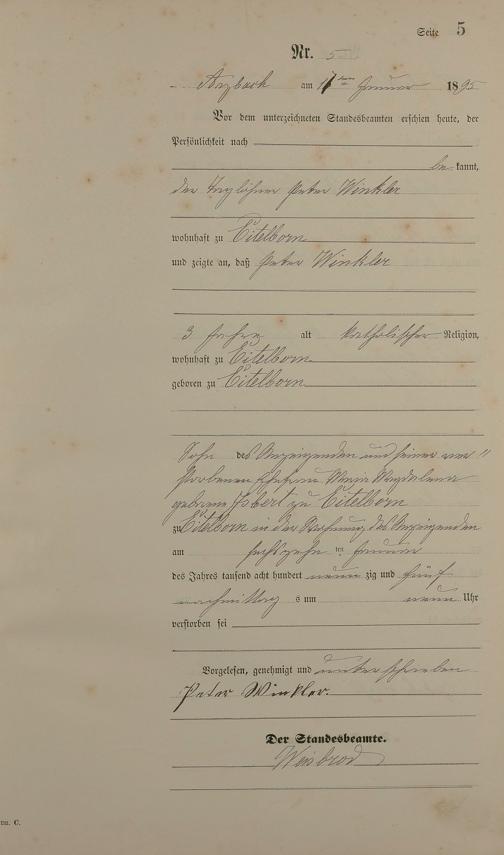 Seite 5
Nr. 5
Arzbach am 17ten Januar 1895
Vor dem unterzeichneten Standesbeamten erschien heute, der
Persönlichkeit nach
bekannt,
der Taglöhner Peter Winkler
wohnhaft zu Eitelborn
und zeigte an, daß Peter Winkler
3 Jahre alt katholischer Religion,
wohnhaft zu Eitelborn
geboren zu Eitelborn
Sohn des Anzeigenden und seiner ver"
storbenen Ehefrau Maria Magdalena
geborene zu Eitelborn
zu Eitelborn in der Wohnung des Anzeigenden
am sechszehn ten Januar
des Jahres tausend acht hundert neun zig und fünf
nachmittag s um neun Uhr
verstorben sei
Vorgelesen, genehmigt und unterschrieben
Peter Winkler.
Der Standesbeamte.
Weisbrod
C.